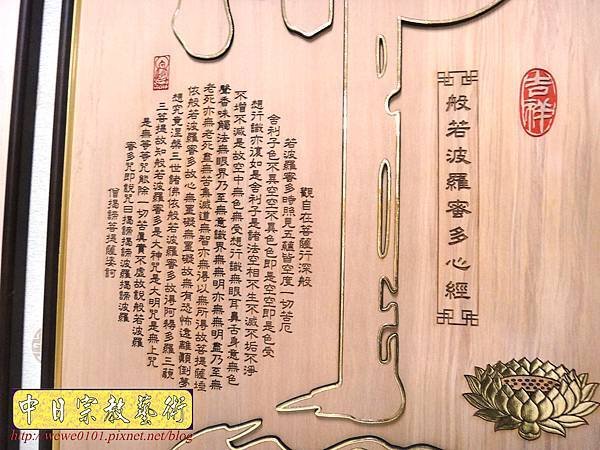 吉祥
般若波羅蜜多心經
觀自在菩薩行深般
若波羅蜜多時照見五蘊皆空度一切苦厄
舍利子色不異空空不異色色即是空空即是色受
想行識亦復如是舍利子是諸法空相不生不滅不垢不淨
不增不減是故空中無色無受想行識無眼耳鼻舌身意無色
聲香味觸法無眼界乃至無意識界無無明亦無無明盡乃至無
老死亦無老死盡無苦集滅道無智亦無得以無所得故菩提薩埵
依般若波羅蜜多故心無罣礙無罣礙故無有恐怖遠離顛倒夢
想究竟涅槃三世諸佛依般若波羅蜜多故得阿耨多羅三藐
三菩提故知般若波羅蜜多是大神咒是大明咒是無上咒
是無等等咒能除一切苦真實不虛故說般若波羅
蜜多咒即說咒曰揭諦揭諦波羅揭諦波羅
僧揭諦菩提薩婆訶
中日宗教藝術
http://wewe0101.pixnet.net/blog